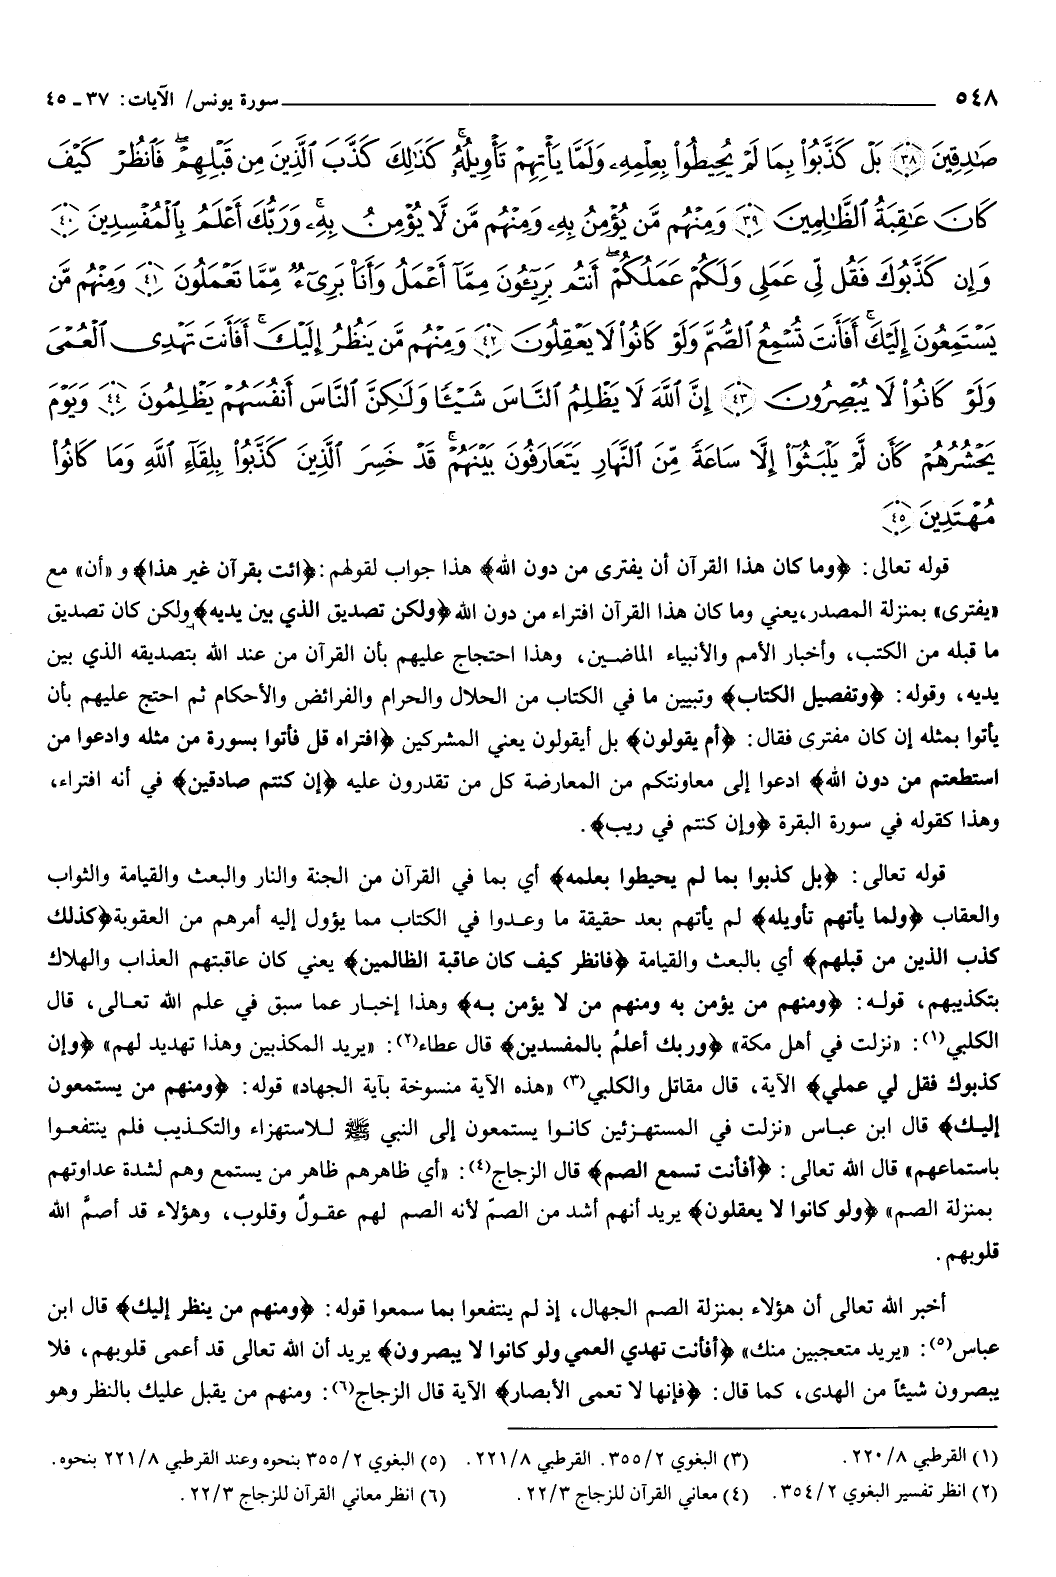 ٥٤٨ سورة يونس/ الآيات: ٣٧ ـ ٤٥
صَٰدِقِينَ ﴿٣٨﴾ بَلْ كَذَّبُوا۟ بِمَا لَمْ يُحِيطُوا۟ بِعِلْمِهِۦ وَلَمَّا يَأْتِهِمْ تَأْوِيلُهُۥۚ كَذَٰلِكَ كَذَّبَ ٱلَّذِينَ مِن قَبْلِهِمْۖ فَٱنظُرْ كَيْفَ
كَانَ عَٰقِبَةُ ٱلظَّٰلِمِينَ ﴿٣٩﴾ وَمِنْهُم مَّن يُؤْمِنُ بِهِۦ وَمِنْهُم مَّن لَّا يُؤْمِنُ بِهِۦۚ وَرَبُّكَ أَعْلَمُ بِٱلْمُفْسِدِينَ ﴿٤٠﴾
وَإِن كَذَّبُوكَ فَقُل لِّى عَمَلِى وَلَكُمْ عَمَلُكُمْۖ أَنتُم بَرِيٓـُٔونَ مِمَّآ أَعْمَلُ وَأَنَا۠ بَرِىٓءٌ مِّمَّا تَعْمَلُونَ ﴿٤١﴾ وَمِنْهُم مَّن
يَسْتَمِعُونَ إِلَيْكَۚ أَفَأَنتَ تُسْمِعُ ٱلصُّمَّ وَلَوْ كَانُوا۟ لَا يَعْقِلُونَ ﴿٤٢﴾ وَمِنْهُم مَّن يَنظُرُ إِلَيْكَۚ أَفَأَنتَ تَهْدِى ٱلْعُمْىَ
وَلَوْ كَانُوا۟ لَا يُبْصِرُونَ ﴿٤٣﴾ إِنَّ ٱللَّهَ لَا يَظْلِمُ ٱلنَّاسَ شَيْـًٔا وَلَٰكِنَّ ٱلنَّاسَ أَنفُسَهُمْ يَظْلِمُونَ ﴿٤٤﴾ وَيَوْمَ
يَحْشُرُهُمْ كَأَن لَّمْ يَلْبَثُوٓا۟ إِلَّا سَاعَةً مِّنَ ٱلنَّهَارِ يَتَعَارَفُونَ بَيْنَهُمْۚ قَدْ خَسِرَ ٱلَّذِينَ كَذَّبُوا۟ بِلِقَآءِ ٱللَّهِ وَمَا كَانُوا۟
مُهْتَدِينَ ﴿٤٥﴾
قوله تعالى: ﴿وما كان هذا القرآن أن يفترى من دون الله﴾ هذا جواب لقولهم: ﴿ائت بقرآن غير هذا﴾ و «أن» مع
«يفترى» بمنزلة المصدر، يعني وما كان هذا القرآن افتراء من دون الله ﴿ولكن تصديق الذي بين يديه﴾ ولكن كان تصديق
ما قبله من الكتب، وأخبار الأمم والأنبياء الماضين، وهذا احتجاج عليهم بأن القرآن من عند الله بتصديقه الذي بين
يديه، وقوله: ﴿وتفصيل الكتاب﴾ وتبيين ما في الكتاب من الحلال والحرام والفرائض والأحكام ثم احتج عليهم بأن
يأتوا بمثله إن كان مفترى فقال: ﴿أم يقولون﴾ بل أيقولون يعني المشركين ﴿افتراه قل فأتوا بسورة من مثله وادعوا من
استطعتم من دون الله﴾ ادعوا إلى معاونتكم من المعارضة كل من تقدرون عليه ﴿إن كنتم صادقين﴾ في أنه افتراء،
وهذا كقوله في سورة البقرة ﴿وإن كنتم في ريب﴾.
قوله تعالى: ﴿بل كذبوا بما لم يحيطوا بعلمه﴾ أي بما في القرآن من الجنة والنار والبعث والقيامة والثواب
والعقاب ﴿ولما يأتهم تأويله﴾ لم يأتهم بعد حقيقة ما وعدوا في الكتاب مما يؤول إليه أمرهم من العقوبة ﴿كذلك
كذب الذين من قبلهم﴾ أي بالبعث والقيامة ﴿فانظر كيف كان عاقبة الظالمين﴾ يعني كان عاقبتهم العذاب والهلاك
بتكذيبهم، قوله: ﴿ومنهم من يؤمن به ومنهم من لا يؤمن به﴾ وهذا إخبار عما سبق في علم الله تعالى، قال
الكلبي(١): «نزلت في أهل مكة» ﴿وربك أعلمُ بالمفسدين﴾ قال عطاء(٢): «يريد المكذبين وهذا تهديد لهم» ﴿وإن
كذبوك فقل لي عملي﴾ الآية، قال مقاتل والكلبي(٣) «هذه الآية منسوخة بآية الجهاد» قوله: ﴿ومنهم من يستمعون
إليك﴾ قال ابن عباس «نزلت في المستهزئين كانوا يستمعون إلى النبي ﷺ للاستهزاء والتكذيب فلم ينتفعوا
باستماعهم» قال الله تعالى: ﴿أفأنت تسمع الصم﴾ قال الزجاج(٤): «أي ظاهرهم ظاهر من يستمع وهم لشدة عداوتهم
بمنزلة الصم» ﴿ولو كانوا لا يعقلون﴾ يريد أنهم أشد من الصمّ لأنه الصم لهم عقولٌ وقلوب، وهؤلاء قد أصمَّ الله
قلوبهم.
أخبر الله تعالى أن هؤلاء بمنزلة الصم الجهال، إذ لم ينتفعوا بما سمعوا قوله: ﴿ومنهم من ينظر إليك﴾ قال ابن
عباس(٥): «يريد متعجبين منك» ﴿أفأنت تهدي العمي ولو كانوا لا يبصرون﴾ يريد أن الله تعالى قد أعمى قلوبهم، فلا
يبصرون شيئاً من الهدى، كما قال: ﴿فإنها لا تعمى الأبصار﴾ الآية قال الزجاج(٦): ومنهم من يقبل عليك بالنظر وهو
(١) القرطبي ٨/ ٢٢٠. (٣) البغوي ٢/ ٣٥٥. القرطبي ٨/ ٢٢١. (٥) البغوي ٢/ ٣٥٥ بنحوه وعند القرطبي ٨/ ٢٢١ بنحوه.
(٢) انظر تفسير البغوي ٢/ ٣٥٤. (٤) معاني القرآن للزجاج ٣/ ٢٢. (٦) انظر معاني القرآن للزجاج ٣/ ٢٢.